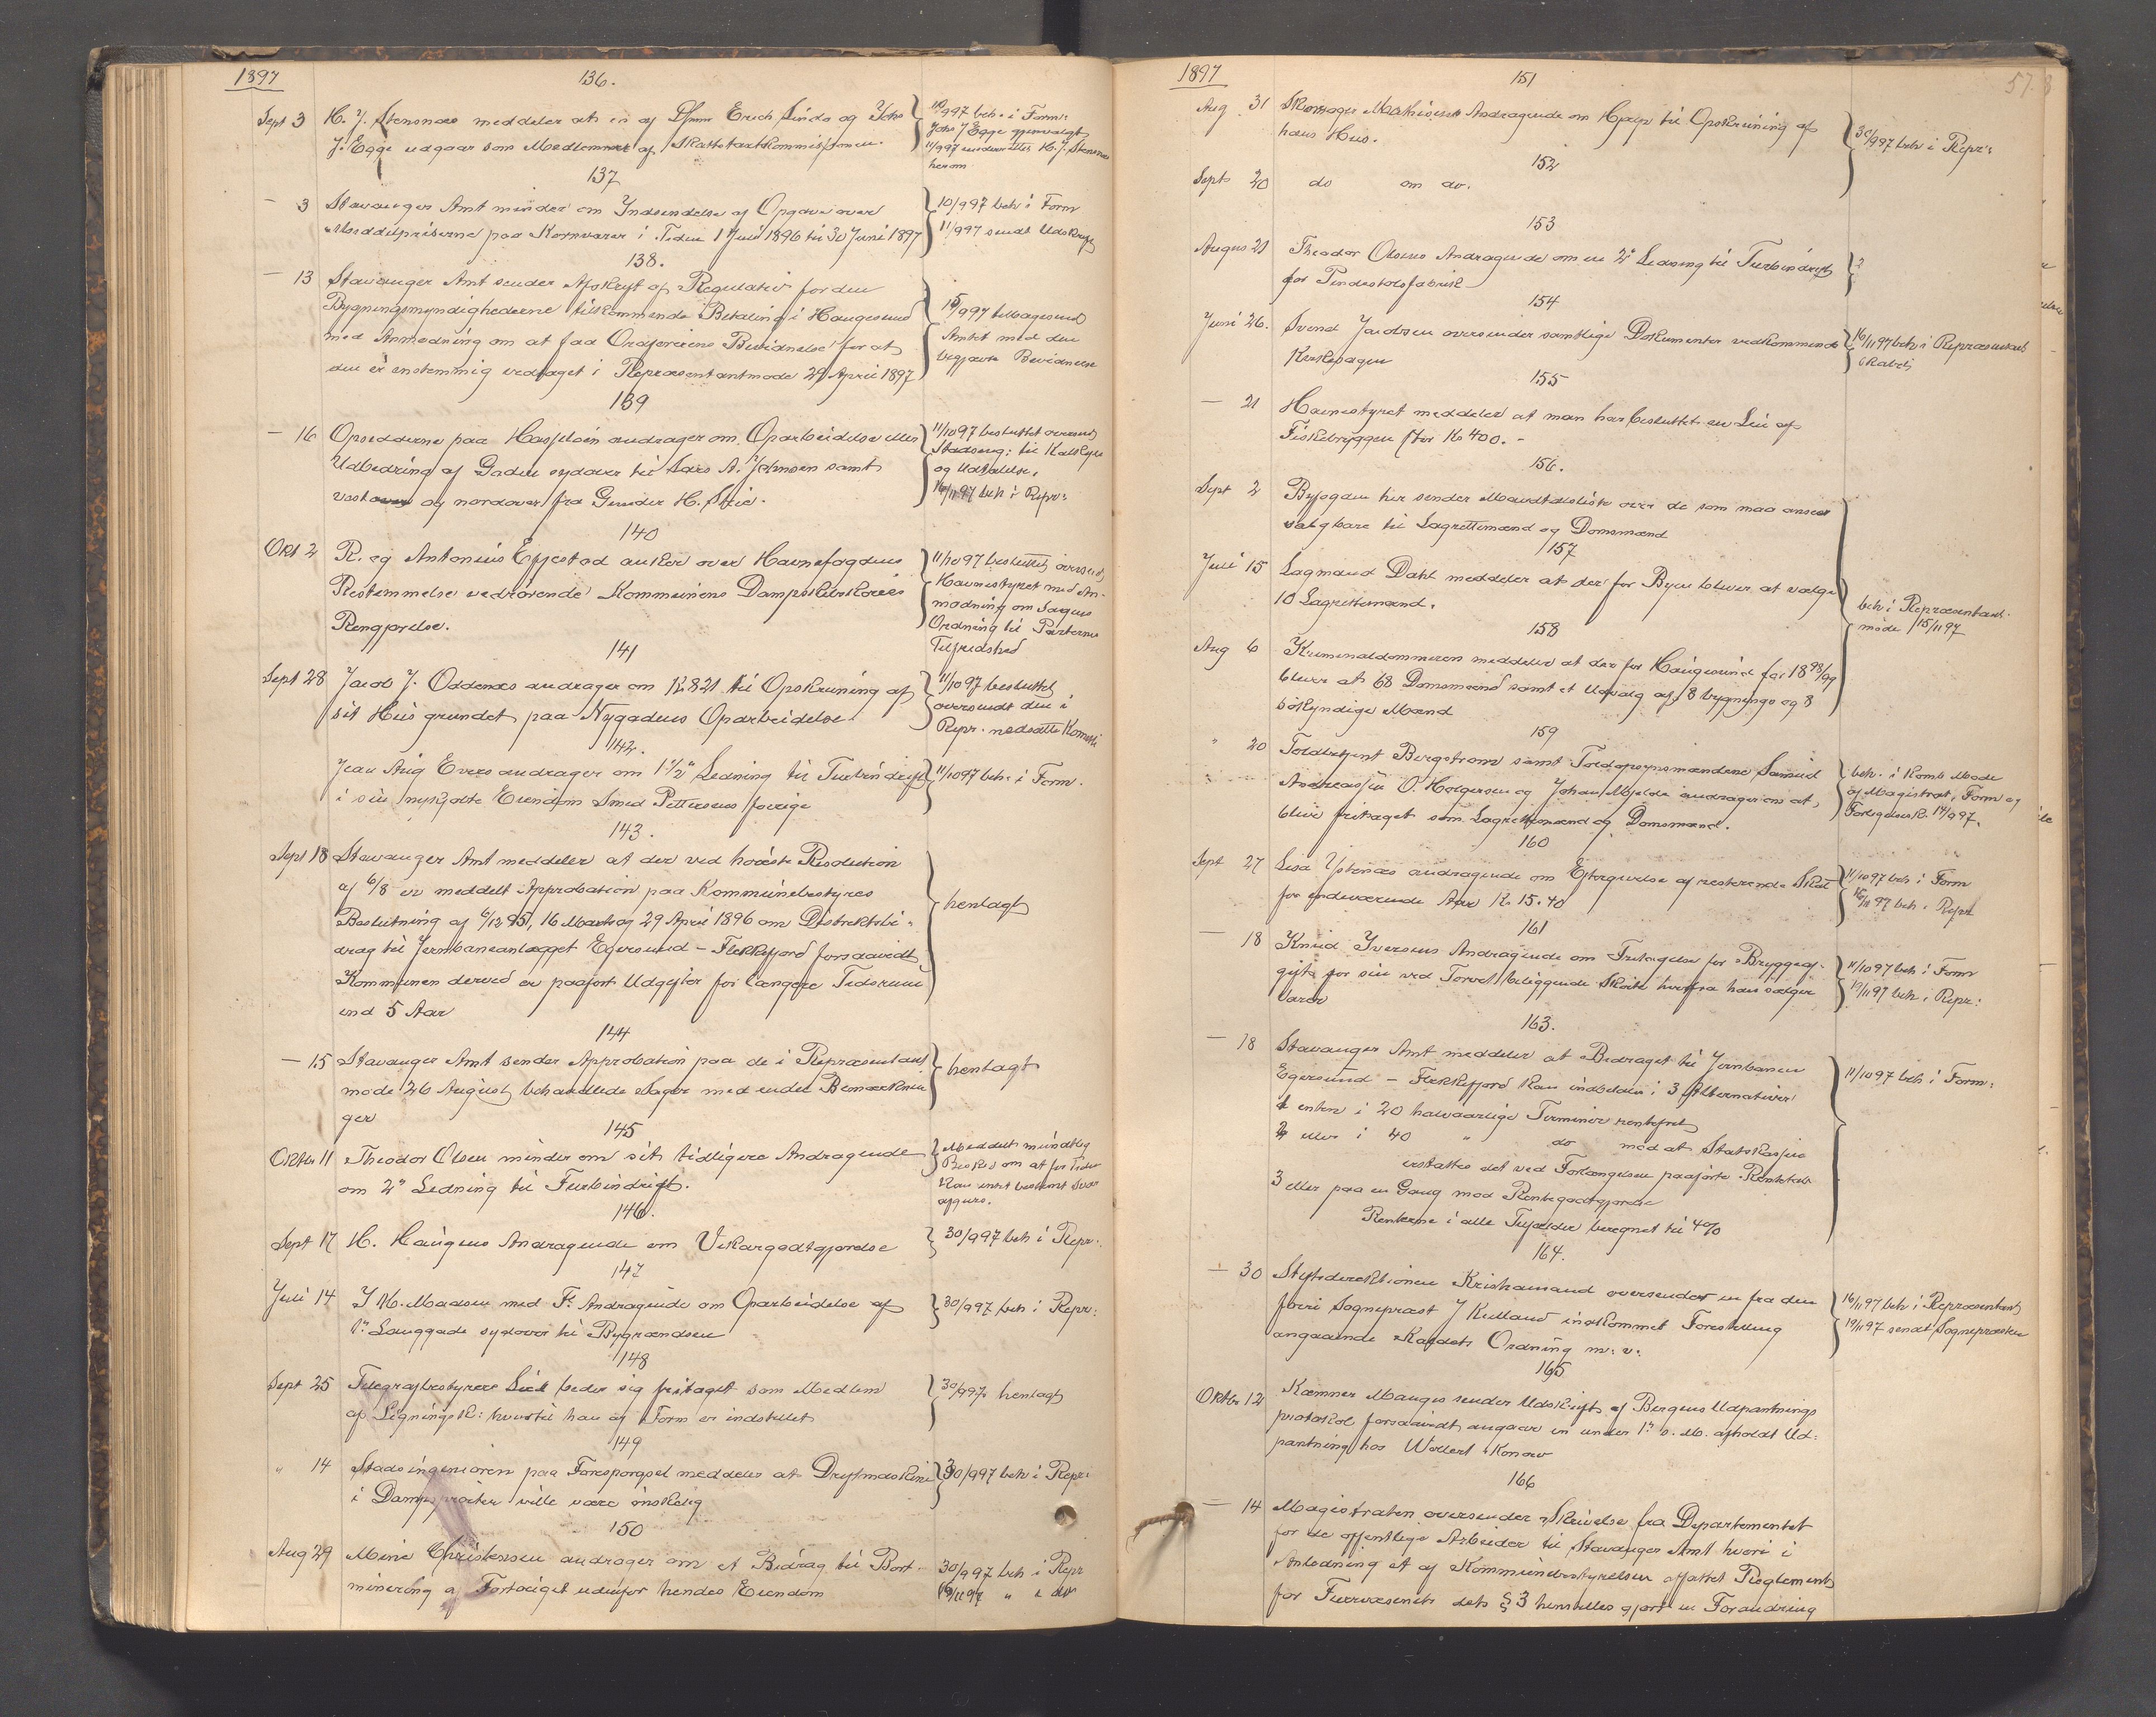 1897
136.
Sept 3 H. J. Stensnæs meddeler at en af Erich Lindø og Johs
J. Egge udgaar som Medlemmer af Skattetaxtkommissionen.
10/9 97 beh. i Form:
Johs J Egge gjenvalgt
11/9 97 underrettes H. J. Stensnæs
herom
137
— 3 Stavanger Amt minder om Indsendelse af Opgave over
Middelpriserne paa Kornvarer i Tiden 1 Juli 1896 til 30 Juni 1897
10/9 97 beh i Form
11/9 97 sendt Udskrift
138.
— 13 Stavanger Amt sender Afskrift af Regulativ for den
Bygningsmyndighederne tilkommende Betaling i Haugesund
med Anmodning om at faa Ordførerens Bevidnelse for at
den er enstemmig vedtaget i Repræsentantmøde 29 April 1897
15/9 97 tilbagesend
Amtet med den
begjærte Bevidnelse
139
— 16 Opsidderne paa Hasseløen andrager om Oparbeidelse eller
Udbedring af Gaden sydover til Lars A. Johnsen samt
vestover og nordover fra Gunder H.
11/10 97 besluttet oversend
Stadsing: til
og Udtalelse.
16/11 97 beh i Repr:
140
Okt 2 R. og Antonius Eppestad anker over Havnefogdens
Bestemmelse vedrørende Kommunens Dampskibskaies
Rengjørelse.
11/10 97 besluttet oversend
Havnestyret med An-
modning om Sagens
Ordning til Parternes
Tilfredshed
141
Sept 28 Jacob J. Oddenæs andrager om Kr 821 til Opskruning af
sit Hus grundet paa Nygadens Oparbeidelse
11/10 97 besluttet
oversendt den i
Repr. nedsatte Komite
142.
Jean Aug Evers andrager om 1½" Ledning til Turbindrift
i sin nykjøbte Eiendom Smed Pettersens forrige
11/10 97 beh. i Form.
143.
Sept 18 Stavanger Amt meddeler at der ved høieste Resolution
af 6/8 er meddelt Approbation paa Kommunebestyres
Beslutning af 6/12 95, 16 Marts og 29 April 1896 om Distriktsbi-
drag til Jernbaneanlægget Egersund — Flekkefjord forsaavidt
Kommunen derved er paaført Udgifter for længere Tidsrum
end 5 Aar
henlagt
144
— 15 Stavanger Amt sender Approbation paa de i Repræsentant
møde 26 August behandlede Sager med endel Bemærknin
ger
henlagt
145
Oktbr 11 Theodor Olsen minder om sit tidligere Andragende
om 2" Ledning til Turbindrift.
Meddelt mundtlig
Besked om at for Tiden
kan intet bestemt Svar
afgives.
146.
Sept 17 H. Haugens Andragende om Vikargodtgjørelse
30/9 97 beh i Repr.
147
Juli 14 J M. Madsen med Fl. Andragende om Oparbeidelse af
Langgade sydover til Bygrændsen
30/9 97 beh i Repr:
148
Sept 25 Telegrafbestyrer Lie beder sig fritaget som Medlem
af Ligningsk: hvortil han af Form er indstillet
30/9 97 henlagt
149
" 14 Stadsingeniøren paa Forespørgsel meddeler at Dryfmaskine
i Dampsprøiten ville være ønskelig
30/9 97 beh i Repr:
150
Aug 29 Mine Christensen andrager om et Bidrag til Bort-
minering af Fortouget udenfor hendes Eiendom
30/9 97 beh i Repr
16/11 97 " i do
1897
57.
151
Aug 31 Skomager Mathisens Andragende om Hjælp til Opskruning af
hans Hus.
152
Sept 20 do om do.
30/9 97 beh i Repr:
153
August 21 Theodor Olsens Andragende om en 2" Ledning til Turbindrift
for Pindestolsfabrik
?
154
Juni 26. Svend Jacobsen oversender samtlige Dokumenter vedkommende
Kirkesagen
16/11 97 beh i Repræsentant
skabet
155
— 21 Havnestyret meddeler at man har besluttet en Leie af
Fiskebryggen stor Kr 400. -
156.
Sept 2 Byfogden her sender Mandtalsliste over de som maa ansees
valgbare til Lagrettemænd og Domsmænd
157
Juli 15 Lagmand Dahl meddeler at der for Byen bliver at vælge
10 Lagrettemænd.
158
Aug 6 Kriminaldommeren meddeler at der for Haugesund for 1898/99
bliver at 68 Domsmænd samt et Udvalg af 8 bygnings og 8
søkyndige Mænd
beh i Repræsentant-
møde 15/11 97
159
" 20 Toldbetjent Bergstrøm samt Toldopsynsmændene Samuel
Andreassen O. Holgersen og Johan Mjelde andrager om at
blive fritaget som Lagrettemænd og Domsmænd.
beh. i Komb Møde
af Magistrat, Form og
Forligelsesk. 14/9 97.
160
Sept 27 Lisa Ystenæs andragende om Eftergivelse af resterende Skat
for indeværende Aar Kr. 15.40
11/10 97 beh i Form
16/11 97 beh. Repr
161
— 18 Knud Iversens Andragende om Fritagelse for Bryggeaf-
gift for sin ved Torvet beliggende Skøite hvorfra han sælger
Varer
11/10 97 beh i Form
19/11 97 beh i Repr:
163.
— 18 Stavanger Amt meddeler at Bidraget til Jernbanen
Egersund — Flekkefjord kan indbetales i 3 Alternativer
1 enten i 20 halvaarlige Terminer rentefrit
2 eller i 40 " do mod at Statskassen
erstattes det ved Forlængelsen paaførte Rentetab
3 eller paa en Gang mod Rentegodtgjørelse
Renterne i alle Tilfælder beregnet til 4%
11/10 97 beh i Form:
164.
— 30 Stiftsdirektionen Kristiansand oversender en fra den
forrige Sogneprest J Kielland indkommet Forestilling
angaaende Kaldets Ordning m: v:
16/11 97 beh i Repræsentant
19/11 97 sendt Sognepræsten
165
Oktbr 12 Kæmner Manges sender Udskrift af Bergens Udpantnings
protokol forsaavidt angaar en under 1ste d. M. afholdt Ud-
pantning hos Wollert Konow
166
— 14 Magistraten oversender Skrivelse fra Departementet
for de offentlige Arbeider til Stavanger Amt hvori i
Anledning et af Kommunebestyrelsen affattet Reglement
for Fuervæsenet dets § 3 henstilles gjort en Forandring